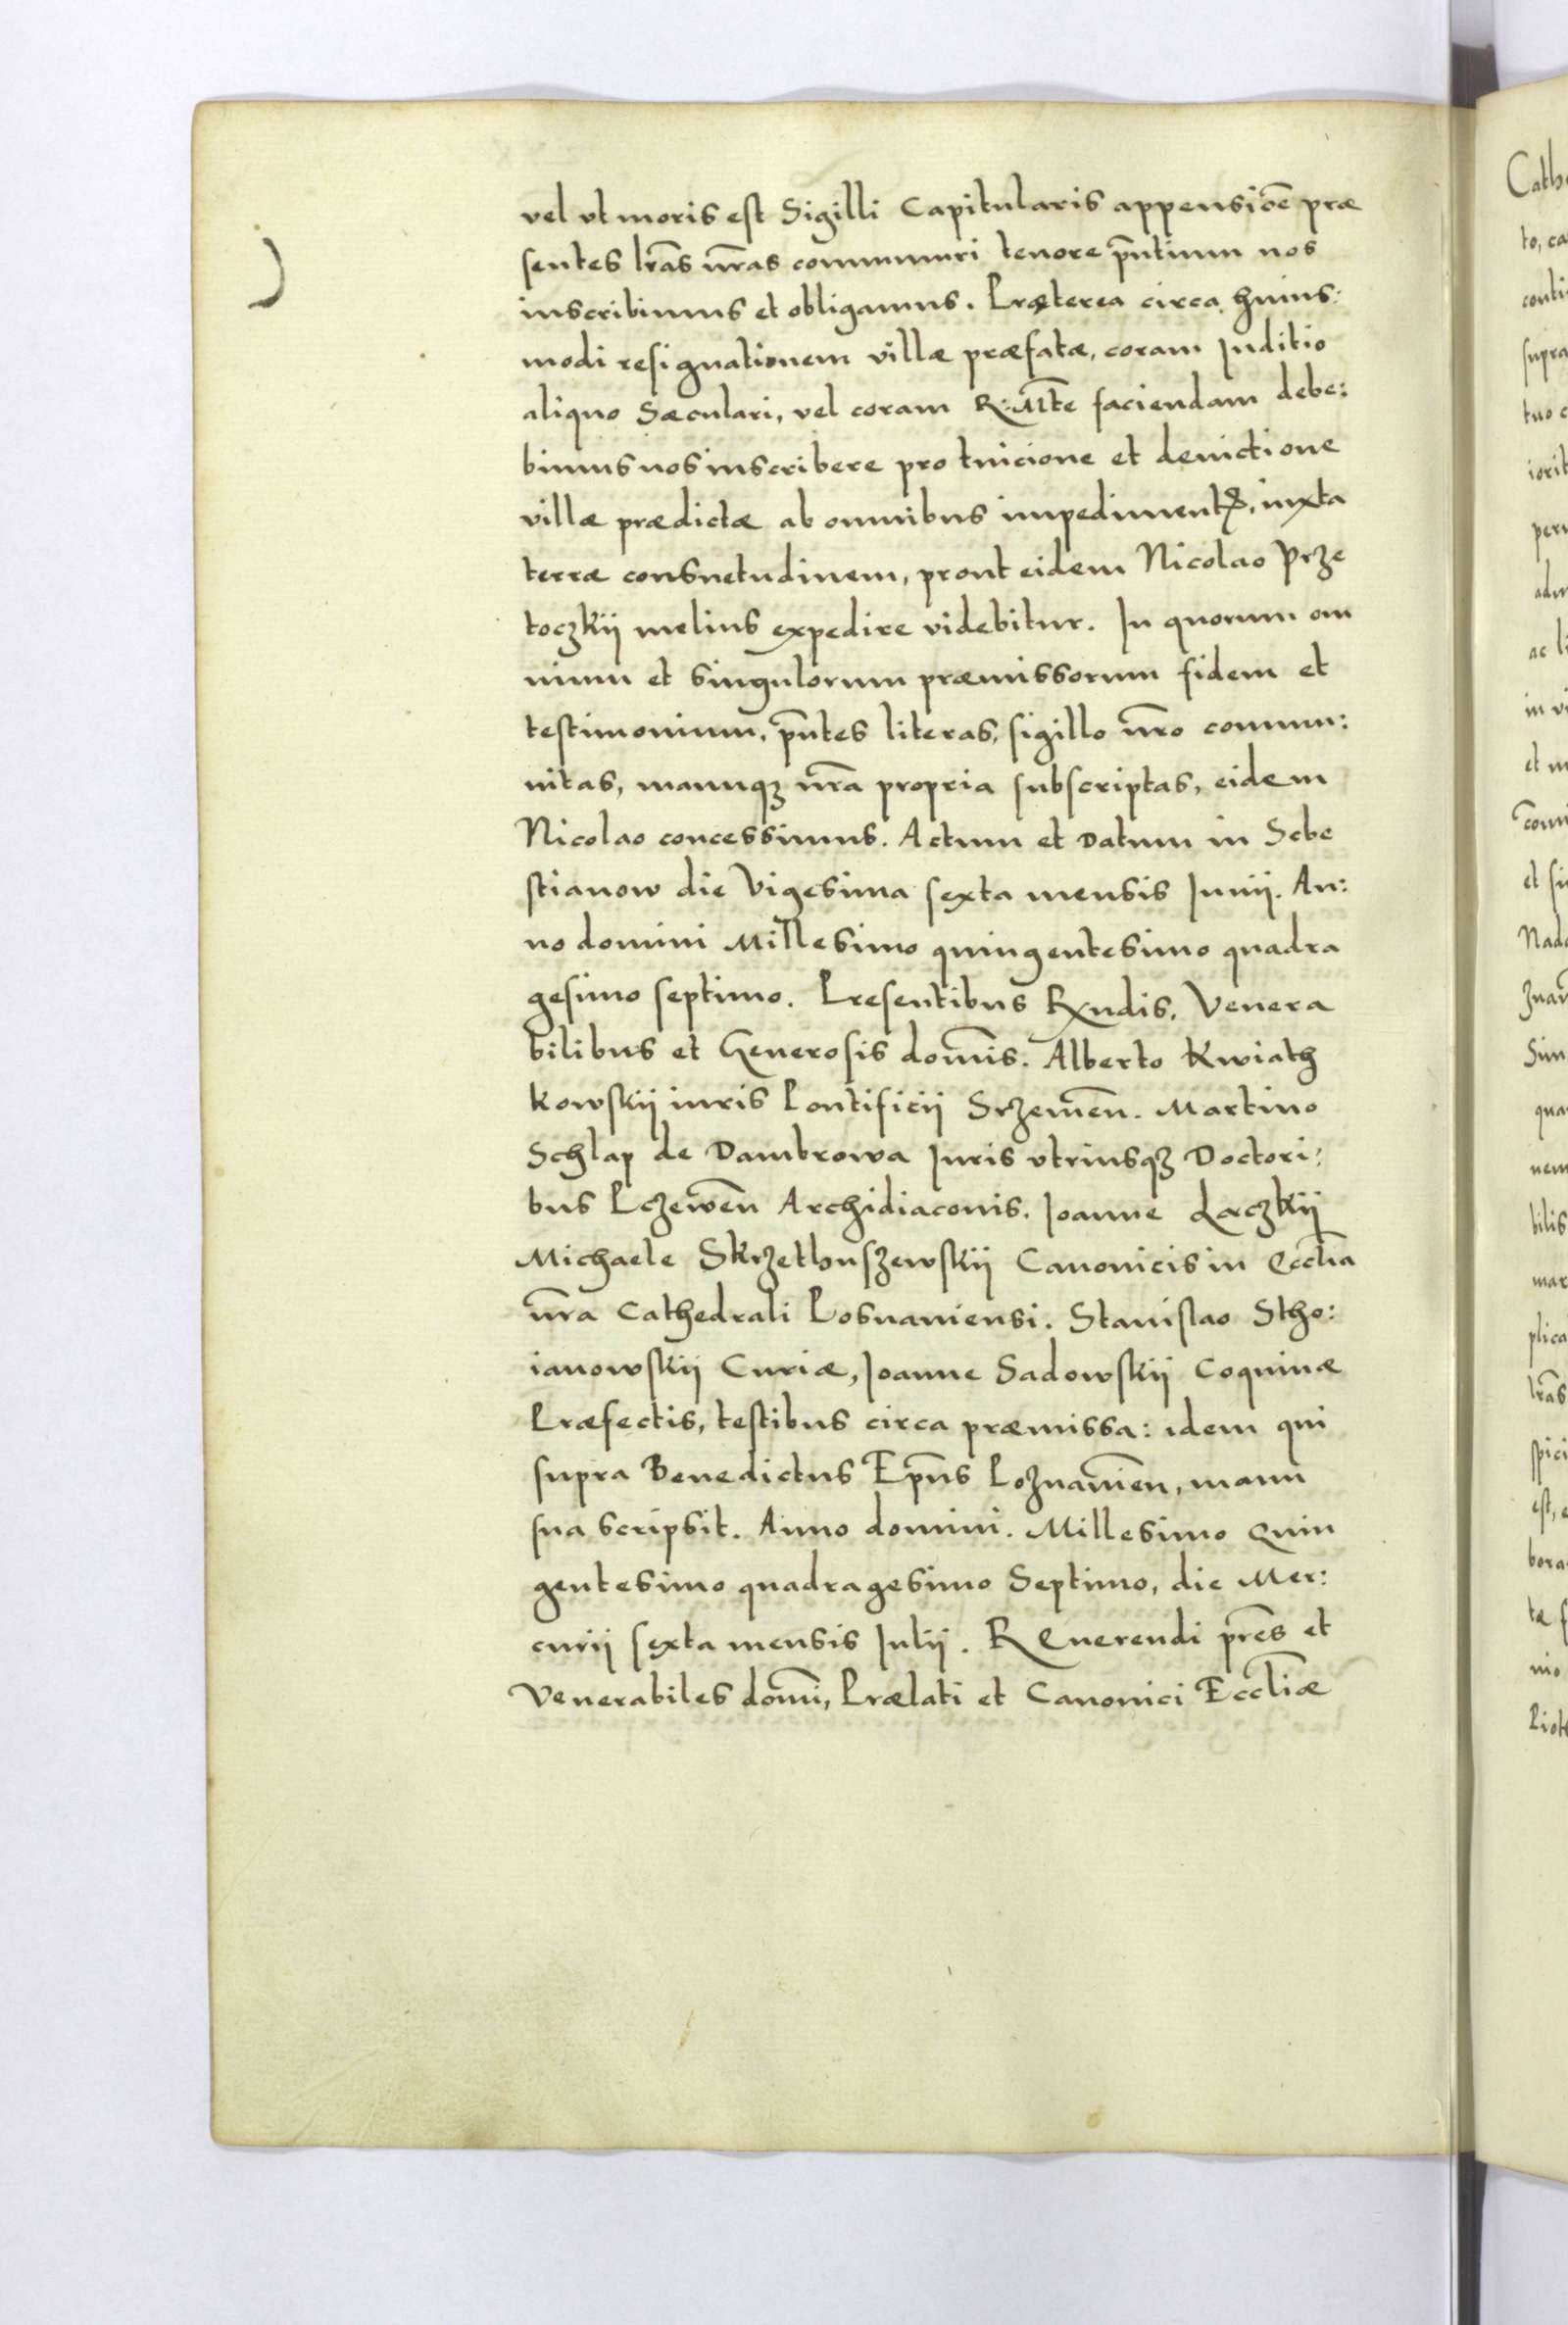 vel vt moris est Sigilli Capitularis appensiōe præ
sentes lr̃as nr̃as communiri tenore pñtium nos
inscribimus et obligamus. Præterea circa huius:
modi resignationem villæ præfatæ, coram Juditio
aliquo Sæculari, vel coram R: Mte faciendam debe:
bimus nos inscribere pro tuicione et deuictione
villæ prædictæ ab omnibus impedimentꝭ, iuxta
terræ consuetudinem, prout eidem Nicolao Prze
toczkij melius expedire videbitur. In quorum om
nium et singulorum præmissorum fidem et
testimonium, pñtes literas, sigillo nr̃o commu:
nitas, manuqꝫ nr̃a propria subscriptas, eidem
Nicolao concessimus. Actum et Datum in Sebe
stianow die Vigesima sexta mensis Junij. An:
no domini Millesimo quingentesimo quadra
gesimo septimo. Presentibus Rxndis, Venera
bilibus et Generosis dom̃is. Alberto Kwiath
kowskij iuris Pontificij Srzemeñ. Martino
Schlap de Dambrowa Juris vtriusqꝫ Doctori:
bus Pczeweñ Archidiaconis. Joanne Laczkij
Michaele Skrzethuszewskij Canonicis in Eccl̃ia
nr̃a Cathedrali Posnaniensi. Stanislao Stho:
ianowskij Curiæ, Joanne Sadowskij Coquinæ
Præfectis, testibus circa præmissa: idem qui
supra Benedictus Ep̃us Poznanień, manu
sua scripsit. Anno domini. Millesimo Quin
gentesimo quadragesimo Septimo, die Mer:
curij sexta mensis Julij. REuerendi pr̃es et
Venerabiles dom̃i, Prælati et Canonici Eccl̃iæ